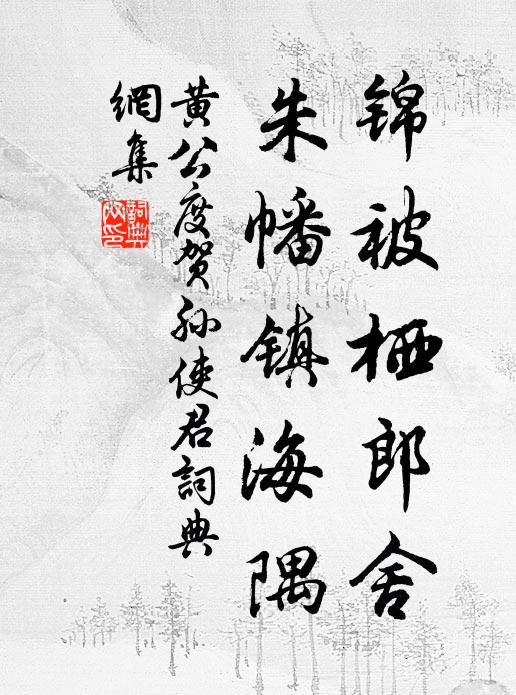 锦被栖郎舍
朱幡镇海隅
黄公度贺孙使君詞典
網集